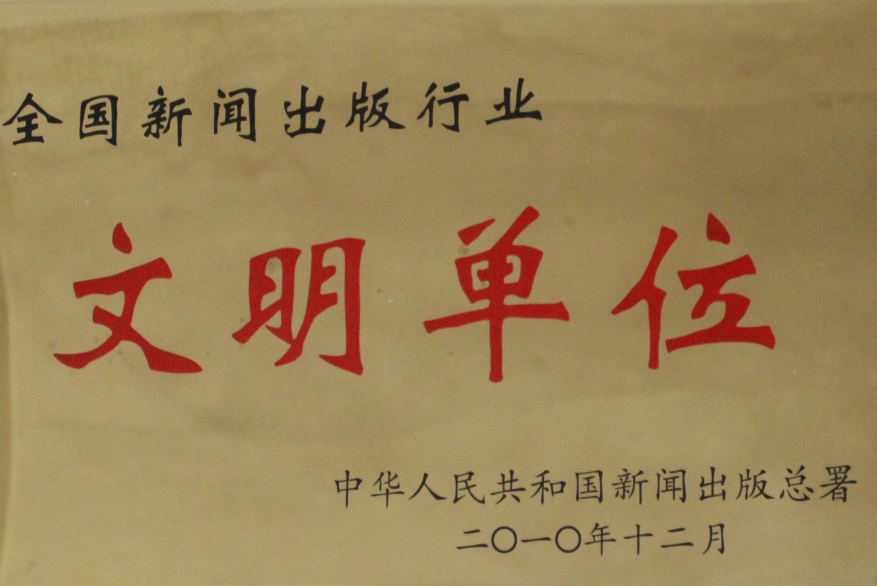 全国新闻出版行业
文明单位
中华人民共和国新闻出版总署
二〇一〇年十二月